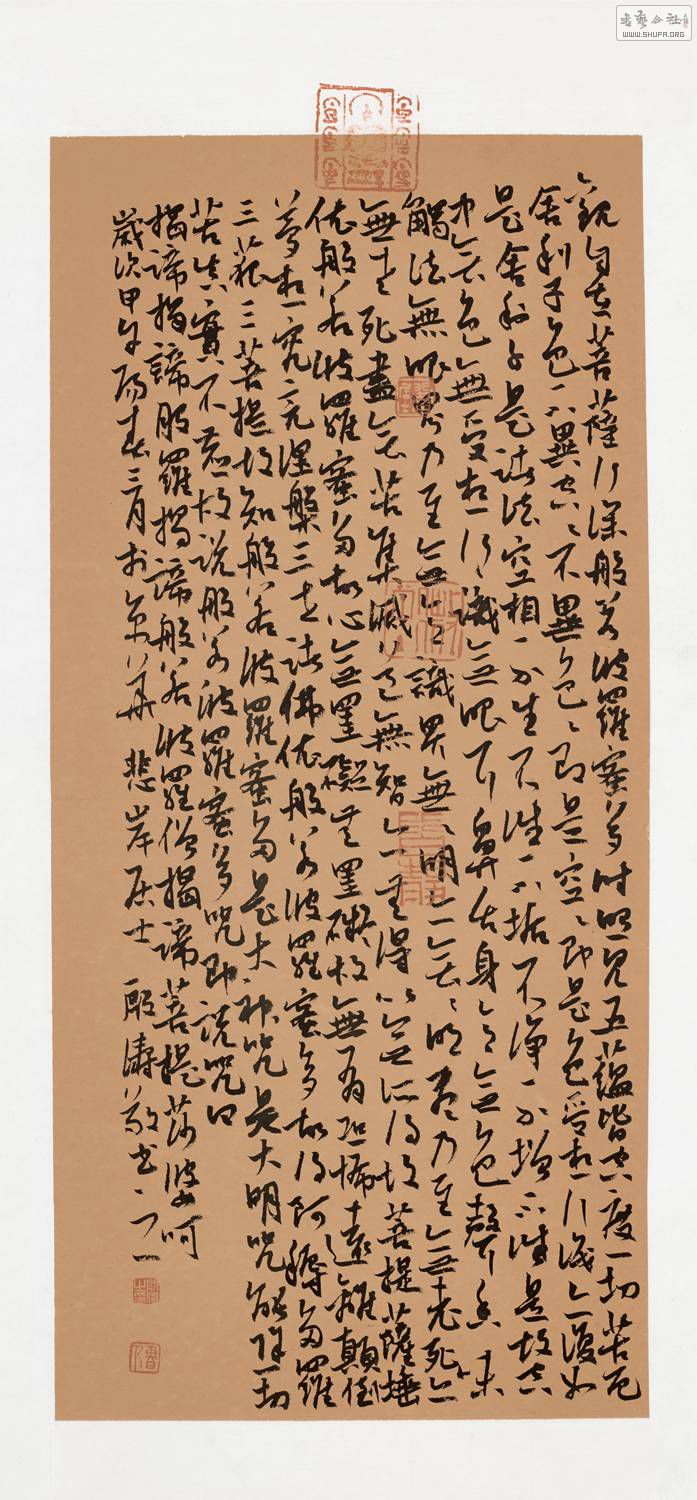 書藝公社
WWW.SHUFA.ORG
觀自在菩薩行深般若波羅蜜多時照見五蘊皆空度一切苦厄
舍利子色不異空空不異色色即是空空即是色受想行識亦復如
是舍利子是諸法空相不生不滅不垢不淨不增不減是故空
中無色無受想行識無眼耳鼻舌身意無色聲香味
觸法無眼界乃至無意識界無無明亦無無明盡乃至無老死亦
無老死盡無苦集滅道無智亦無得以無所得故菩提薩埵
依般若波羅蜜多故心無罣礙無罣礙故無有恐怖遠離顛倒
夢想究竟涅槃三世諸佛依般若波羅蜜多故得阿耨多羅
三藐三菩提故知般若波羅蜜多是大神咒是大明咒能除一切
苦真實不虛故說般若波羅蜜多咒即說咒曰
揭諦揭諦般羅揭諦般若波羅僧揭諦菩提莎婆呵
歲次甲午陽春三月於京華 悲岸居士 殷濤敬書